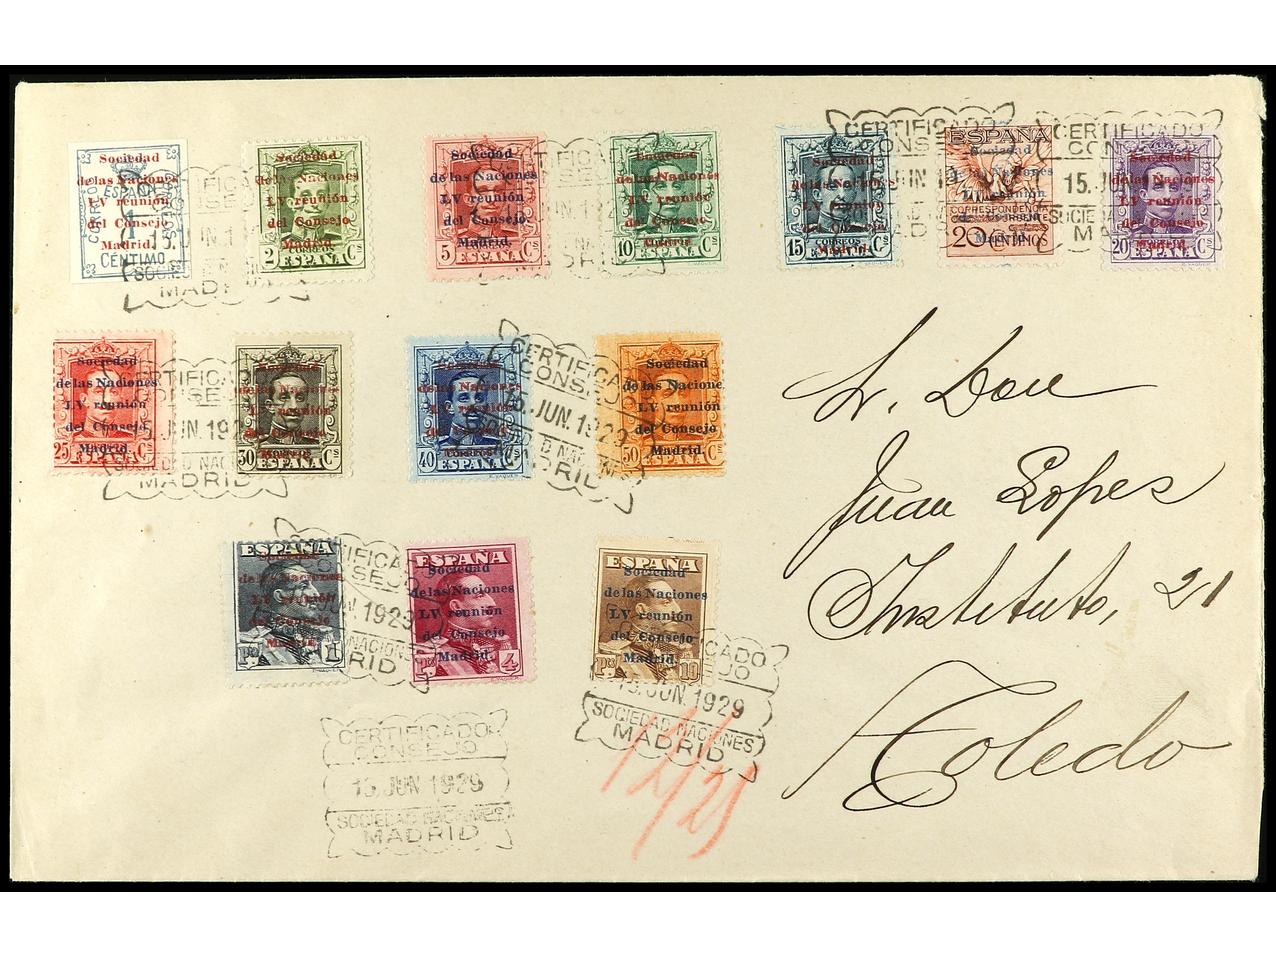 Sociedad
de las Naciones
LV reunión
del Consejo
Madrid.
CORREOS
1
CENTIMO
Sociedad
de las Naciones
LV reunión
del Consejo
Madrid.
2 CORREOS Cs
ESPAÑA
Sociedad
de las Naciones
LV reunión
del Consejo
Madrid.
5 CORREOS Cs
ESPAÑA
Sociedad
de las Naciones
LV reunión
del Consejo
Madrid.
10 CORREOS Cs
ESPAÑA
Sociedad
de las Naciones
LV reunión
del Consejo
Madrid.
15 CORREOS Cs
ESPAÑA
ESPAÑA
Sociedad
de las Naciones
LV reunión
CORRESPONDENCIA
URGENTE
Madrid
20 CENTIMOS
Sociedad
de las Naciones
LV reunión
del Consejo
Madrid.
20 CORREOS Cs
ESPAÑA
CERTIFICADO
CONSEJO
15. JUN. 19
SOCIEDAD
MADRID
Sociedad
de las Naciones
LV reunión
del Consejo
Madrid.
25 Cs
ESPAÑA
Sociedad
de las Naciones
LV reunión
del Consejo
30 CORREOS Cs
ESPAÑA
Sociedad
de las Naciones
LV reunión
del Consejo
40 CORREOS Cs
ESPAÑA
Sociedad
de las Naciones
LV reunión
del Consejo
Madrid.
50 Cs
ESPAÑA
CERTIFICADO
CONSEJO
15. JUN. 1929
MADRID
Sr. Don
Juan Lopes
Instituto, 21
Toledo
ESPAÑA
Sociedad
de las Naciones
LV reunión
del Consejo
Madrid
1
ESPAÑA
Sociedad
de las Naciones
LV reunión
del Consejo
Madrid.
4
ESPAÑA
Sociedad
de las Naciones
LV reunión
del Consejo
Madrid.
10
CERTIFICADO
CONSEJO
15. JUN. 1929
SOCIEDAD NACIONES
MADRID
CERTIFICADO
CONSEJO
15. JUN 1929
SOCIEDAD NACIONES
MADRID